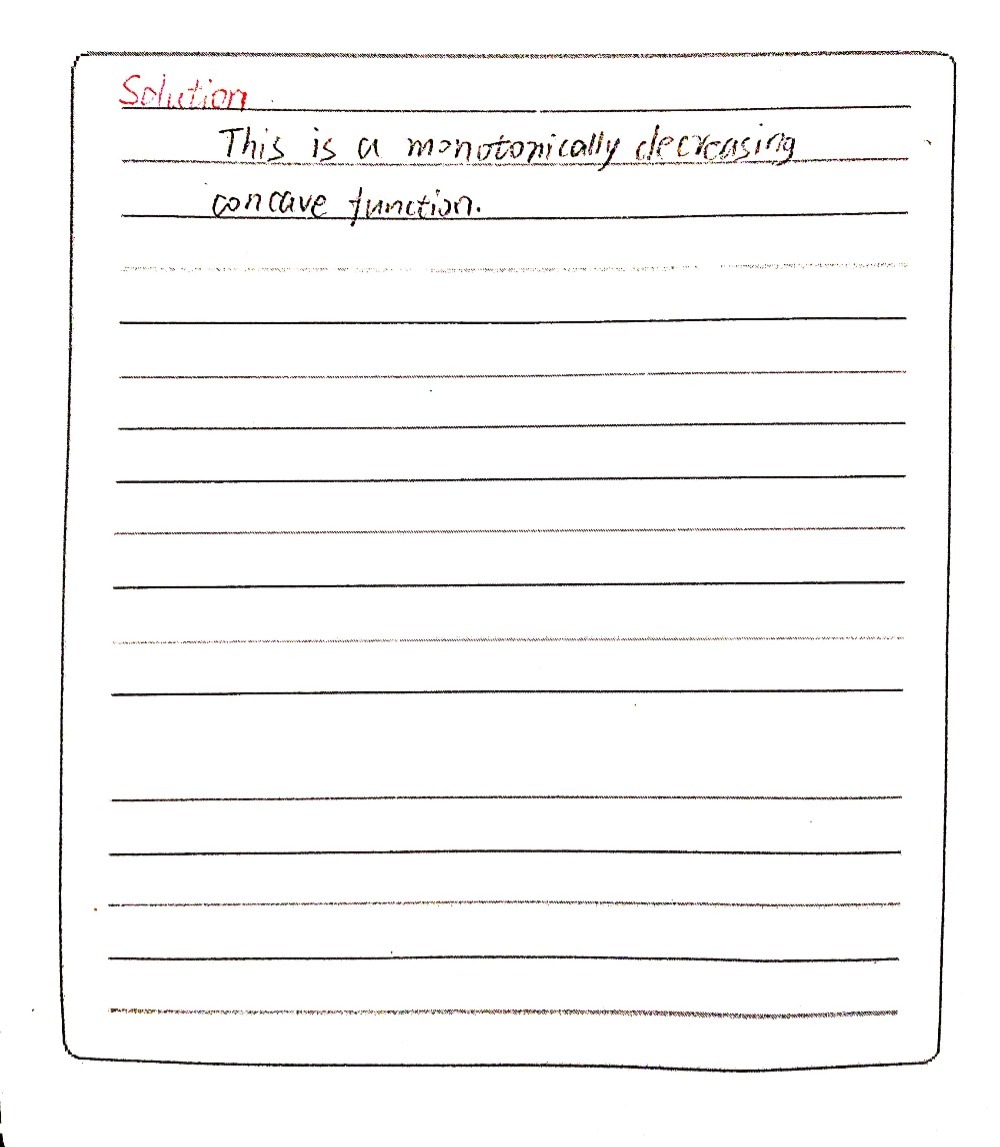 Solution
This is a monotonically decreasing
concave function.